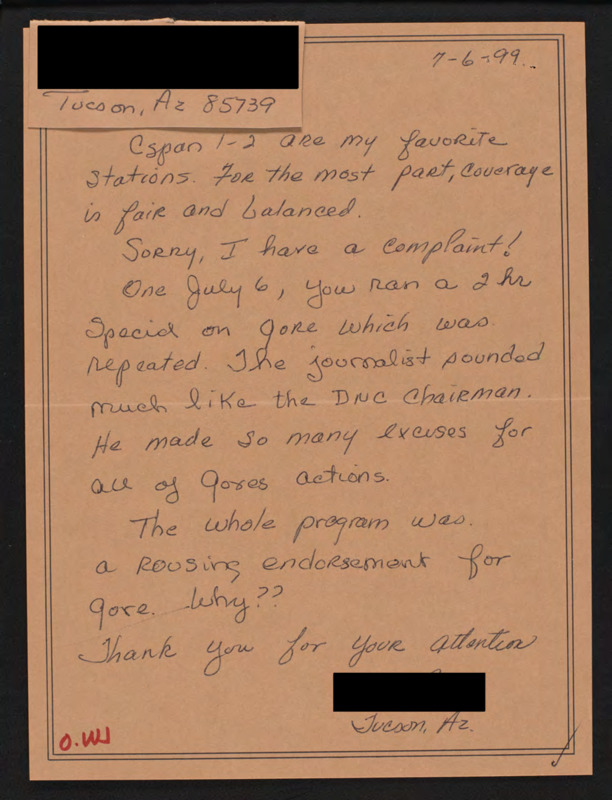 Tucson, Az 85739
7-6-99..
Cspan 1-2 are my favorite
stations. For the most part, coverage
is fair and balanced.
Sorry, I have a complaint!
One July 6, you ran a 2 hr
special on gore which was
repeated. The journalist sounded
much like the DNC Chairman.
He made so many excuses for
all of gores actions.
The whole program was.
a rousing endorsement for
gore. Why??
Thank you for your attention
Tucson, Az.